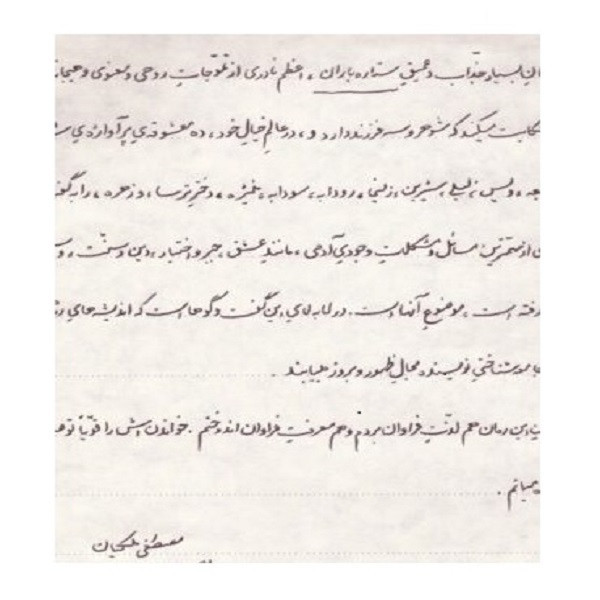 بسیار جذّاب و عمیقِ ستاره باران، اعظم نادری از تموّجات روحی و معنوی و هیجان
حکایت میکند که شوهر و سه فرزند دارد و، در عالم خیالِ خود، ده معشوقه‌ي پرآوازه‌ي
ویس، لیلی، شیرین، زلیخا، رودابه، سودابه، منیژه، دخترِ ترسا، و زهره، را به گف
از مهمترین مسائل و مشکلاتِ وجوديِ آدمی، مانندِ عشق، جبر و اختیار، دین و سنّت، و
رفته است، موضوعِ آنهاست. در لابه لايِ این گفت و گوهاست که اندیشه هايِ
شناختيِ نویسنده مجالِ ظهور و بروز مییابند.
این رمان هم لذّتِ فراوان بردم و هم معرفتِ فراوان اندوختم. خواندن اش را قویّاً توصـ
میکنم.
مصطفی ملکیان